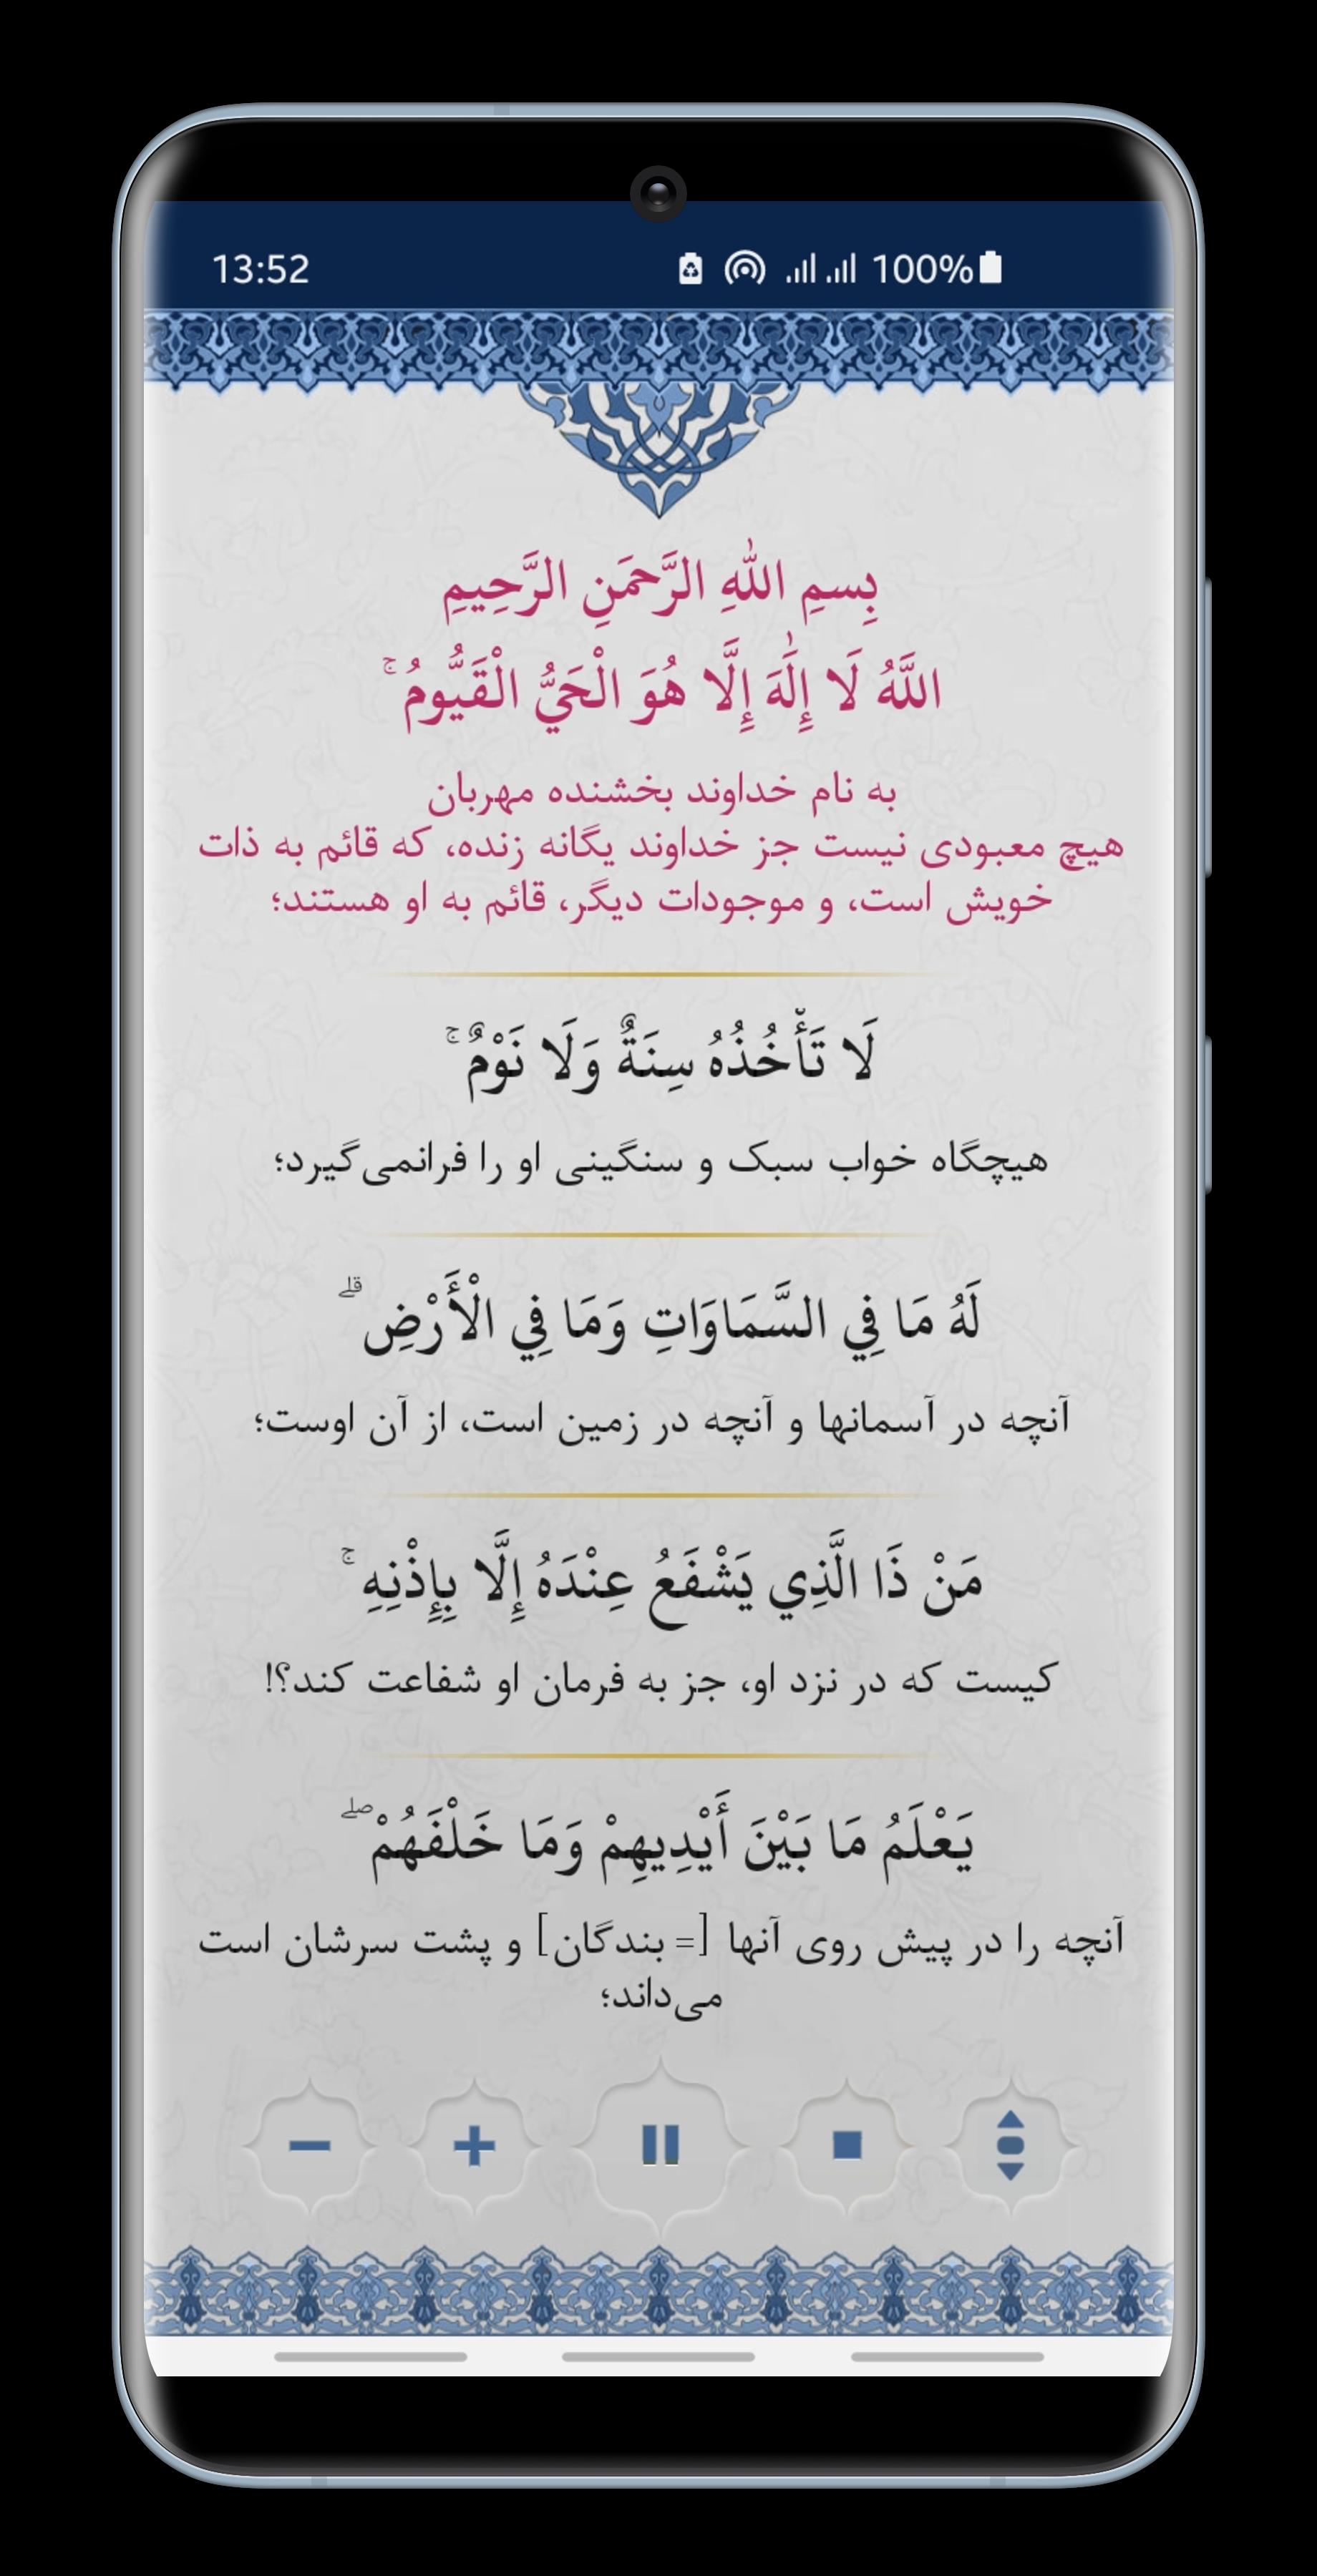 13:52 100%
بِسمِ اللّٰهِ الرَّحمَنِ الرَّحِیمِ
اللَّهُ لَا إِلَٰهَ إِلَّا هُوَ الْحَيُّ الْقَيُّومُ ۚ
به نام خداوند بخشنده مهربان
هیچ معبودی نیست جز خداوند یگانه زنده، که قائم به ذات
خویش است، و موجودات دیگر، قائم به او هستند؛
لَا تَأْخُذُهُ سِنَةٌ وَلَا نَوْمٌ ۚ
هیچگاه خواب سبک و سنگینی او را فرانمی‌گیرد؛
لَهُ مَا فِي السَّمَاوَاتِ وَمَا فِي الْأَرْضِ ۗ
آنچه در آسمانها و آنچه در زمین است، از آن اوست؛
مَنْ ذَا الَّذِي يَشْفَعُ عِنْدَهُ إِلَّا بِإِذْنِهِ ۚ
کیست که در نزد او، جز به فرمان او شفاعت کند؟!
يَعْلَمُ مَا بَيْنَ أَيْدِيهِمْ وَمَا خَلْفَهُمْ ۖ
آنچه را در پیش روی آنها [= بندگان] و پشت سرشان است
می‌داند؛